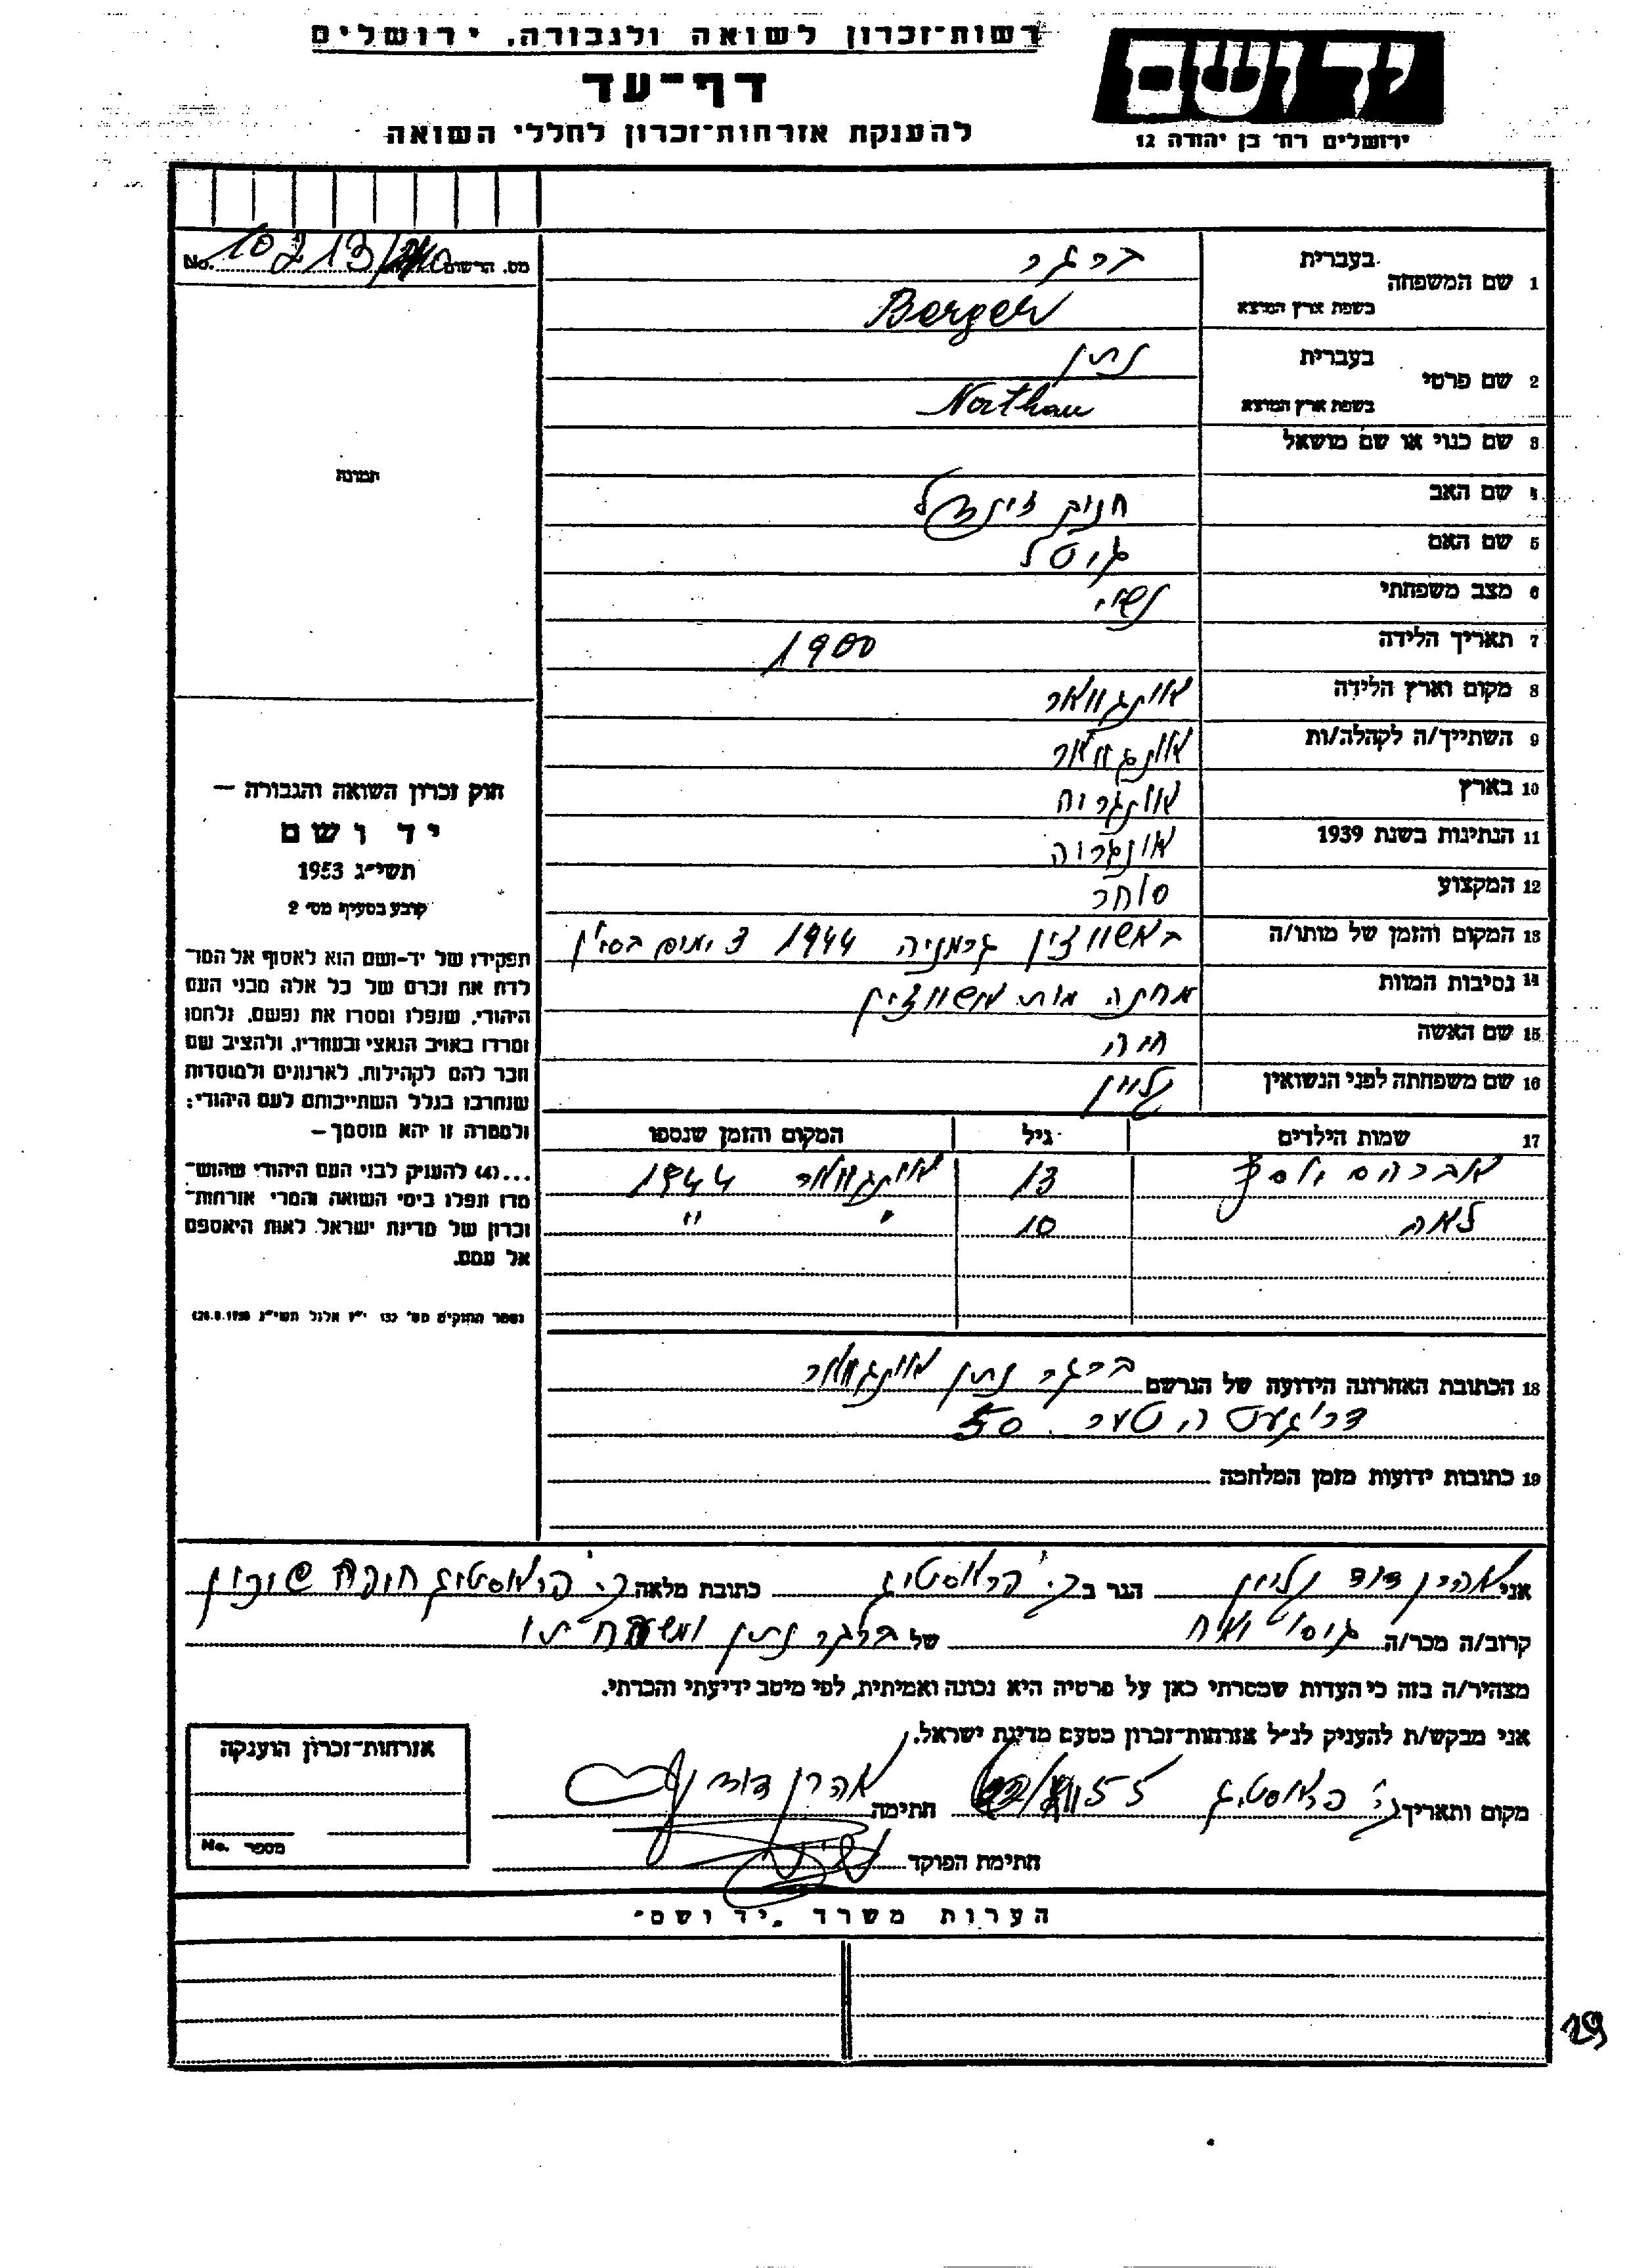 רשות־זכרון לשואה ולגבורה, ירושלים
יד ושם
דף־עד
ירושלים רח׳ בן יהודה 12
להענקת אזרחות־זכרון לחללי השואה
מס. הרשום No.
1 שם המשפחה
בעברית
ברגר
בשפת ארץ המוצא
Berger
2 שם פרטי
בעברית
נתן
בשפת ארץ המוצא
Nathan
3 שם כנוי או שם מושאל
תמונה
4 שם האב
חנוך
5 שם האם
גיטל
6 מצב משפחתי נשוי
7 תאריך הלידה 1900
8 מקום וארץ הלידה אונגוואר
9 השתייך/ה לקהלה/ות אונגוואר
10 בארץ אונגריה
11 הנתינות בשנת 1939 אונגריה
12 המקצוע סוחר
13 המקום והזמן של מותו/ה גרמניה 1944
14 נסיבות המוות מחנה מות
15 שם האשה חיה
16 שם משפחתה לפני הנשואין קליין
17 שמות הילדים גיל המקום והזמן שנספו
אברהם יוסף 13 אונגוואר 1944
לאה 10 " "
חוק זכרון השואה והגבורה –
יד ושם
תשי״ג 1953
קובע בסעיף מס׳ 2
תפקידו של יד-ושם הוא לאסוף אל המו־
לדת את זכרם של כל אלה מבני העם
היהודי, שנפלו ומסרו את נפשם, נלחמו
ומרדו באויב הנאצי ובעוזריו, ולהציב שם
וזכר להם לקהילות, לארגונים ולמוסדות
שנחרבו בגלל השתייכותם לעם היהודי;
ולמטרה זו יהא מוסמך –
...(4) להעניק לבני העם היהודי שהוש־
מדו ונפלו בימי השואה והמרי אזרחות־
זכרון של מדינת ישראל לאות היאספם
אל עמם.
(ספר החוקים מס׳ 132 י״ז אלול תשי״ג 28.8.1953)
18 הכתובת האחרונה הידועה של הנרשם ברגר נתן אונגוואר
50
19 כתובות ידועות מזמן המלחמה
אני אהרן דוד קליין הגר ב כתובת מלאה
קרוב/ה מכר/ה גיסו של ברגר נתן
מצהיר/ה בזה כי העדות שמסרתי כאן על פרטיה היא נכונה ואמיתית, לפי מיטב ידיעתי והכרתי.
אני מבקש/ת להעניק לנ״ל אזרחות־זכרון מטעם מדינת ישראל.
מקום ותאריך 55 חתימה אהרן דוד
חתימת הפוקד
אזרחות־זכרון הוענקה
מספר No.
הערות משרד „יד ושם"
29